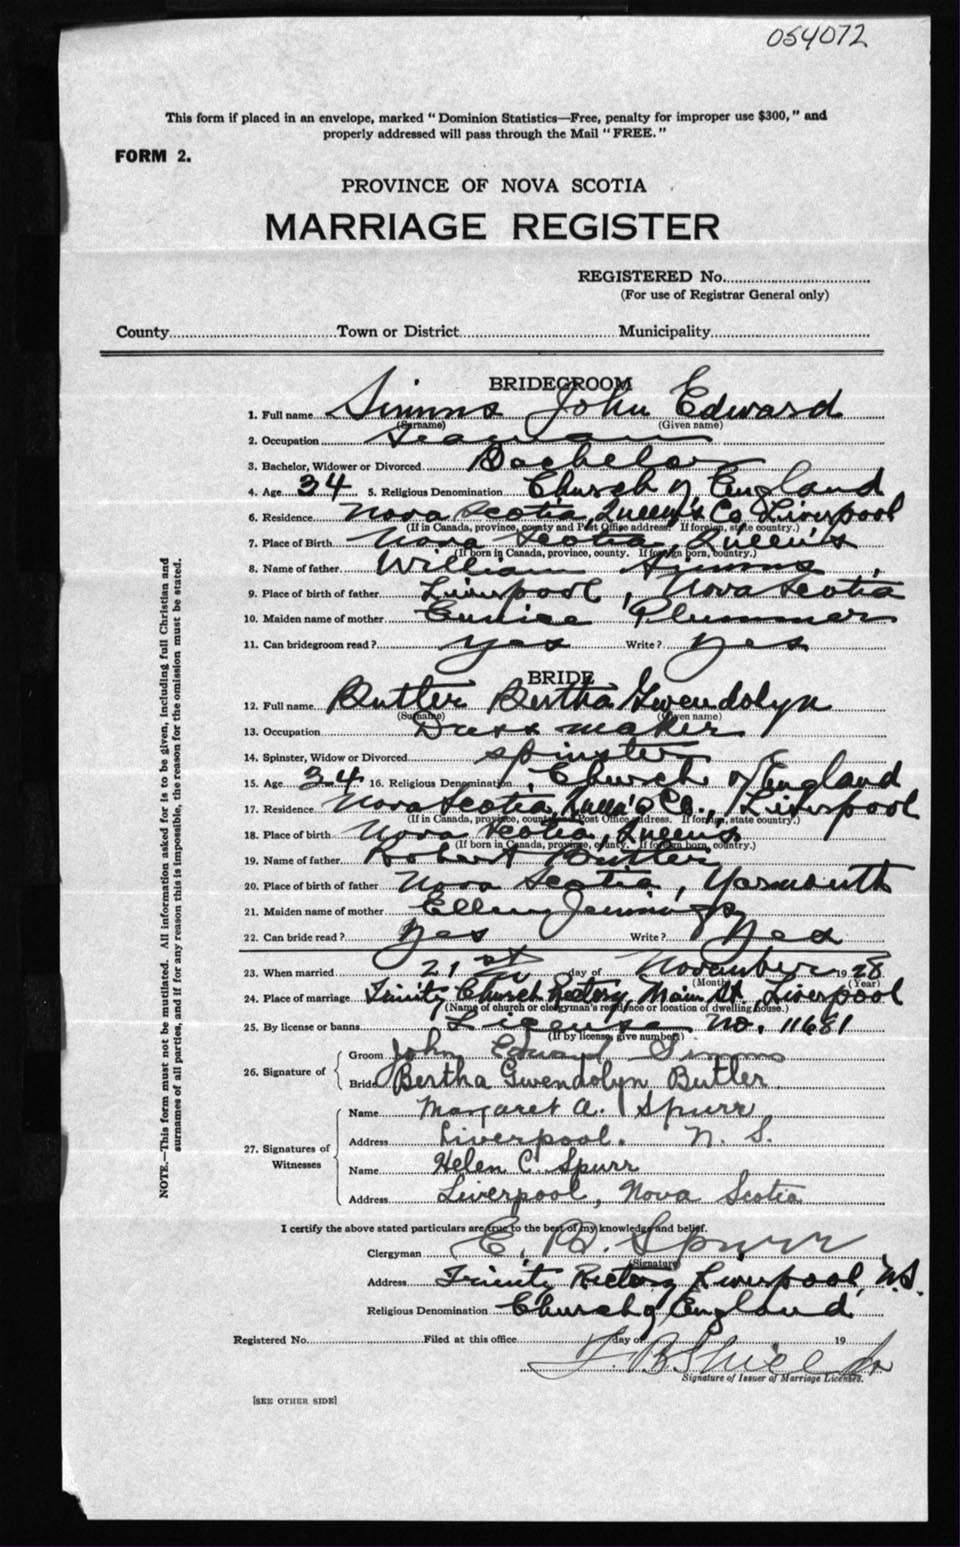 054072
This form if placed in an envelope, marked "Dominion Statistics—Free, penalty for improper use $300," and
properly addressed will pass through the Mail "FREE."
FORM 2.
PROVINCE OF NOVA SCOTIA
MARRIAGE REGISTER
REGISTERED No.
(For use of Registrar General only)
County Town or District Municipality
BRIDEGROOM
1. Full name Simms John Edward
(Surname) (Given name)
2. Occupation Seaman
3. Bachelor, Widower or Divorced Bachelor
4. Age 34 5. Religious Denomination Church of England
6. Residence Nova Scotia, Queen's Co. Liverpool
(If in Canada, province, county and Post Office address. If foreign, state country.)
7. Place of Birth Nova Scotia, Queen's
(If born in Canada, province, county. If foreign born, country.)
8. Name of father William Simms
9. Place of birth of father Liverpool, Nova Scotia
10. Maiden name of mother Eunice Plummer
11. Can bridegroom read? yes Write? yes
BRIDE
12. Full name Butler Bertha Gwendolyn
(Surname) (Given name)
13. Occupation Dress maker
14. Spinster, Widow or Divorced spinster
15. Age 34 16. Religious Denomination Church of England
17. Residence Nova Scotia, Queen's Co., Liverpool
(If in Canada, province, county and Post Office address. If foreign, state country.)
18. Place of birth Nova Scotia, Queens
(If born in Canada, province, county. If foreign born, country.)
19. Name of father Robert Butler
20. Place of birth of father Nova Scotia, Yarmouth
21. Maiden name of mother Ellen Jennings
22. Can bride read? Yes Write? Yes
23. When married 21st day of November 1928
(Month) (Year)
24. Place of marriage Trinity Church Rectory, Main St. Liverpool
(Name of church or clergyman's residence or location of dwelling house.)
25. By license or banns License No. 11681
(If by license, give number)
26. Signature of
Groom John Edward Simms
Bride Bertha Gwendolyn Butler
27. Signatures of
Witnesses
Name Margaret A. Spurr
Address Liverpool. N. S.
Name Helen C. Spurr
Address Liverpool, Nova Scotia
I certify the above stated particulars are true to the best of my knowledge and belief.
Clergyman E. B. Spurr
(Signature)
Address Trinity Rectory Liverpool, N.S.
Religious Denomination Church of England
Registered No. Filed at this office day of 19
Signature of Issuer of Marriage Licenses.
[SEE OTHER SIDE]
NOTE.—This form must not be mutilated. All information asked for is to be given, including full Christian and
surnames of all parties, and if for any reason this is impossible, the reason for the omission must be stated.